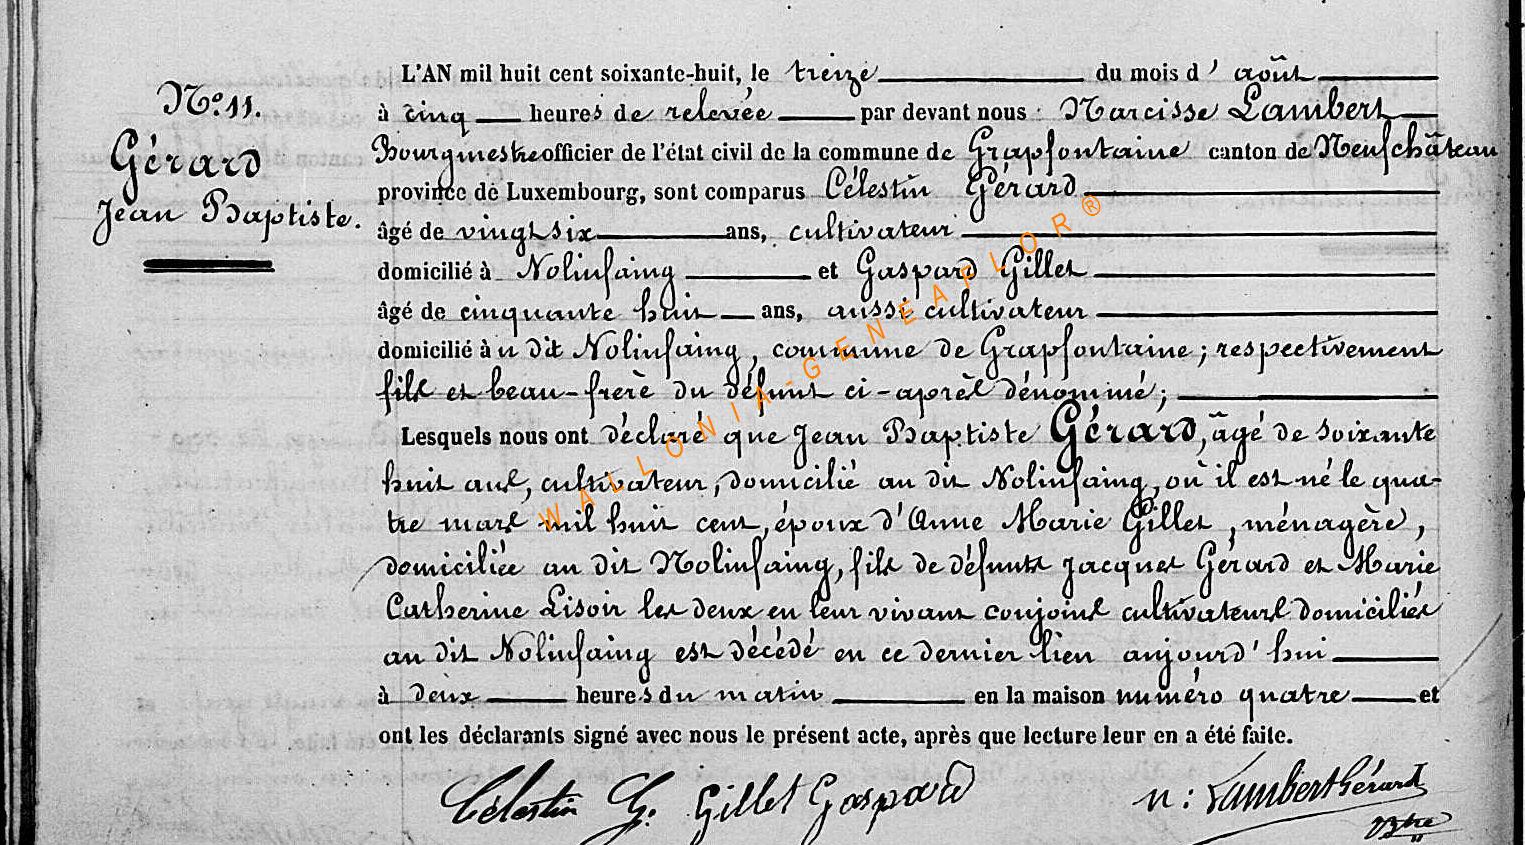 N.º 11.
Gérard
Jean Baptiste.
L'AN mil huit cent soixante-huit, le treize du mois d' août
à cinq heures de relevée par devant nous Narcisse Lambert
Bourgmestre officier de l'état civil de la commune de Grapfontaine canton de Neufchâteau
province de Luxembourg, sont comparus Célestin Gérard
âgé de vingt six ans, cultivateur
domicilié à Nolinfaing et Gaspard Gillet
âgé de cinquante huit ans, aussi cultivateur
domicilié à u dit Nolinfaing, commune de Grapfontaine; respectivement
fils et beau-frère du défunt ci-après dénommé;
Lesquels nous ont déclaré que Jean Baptiste Gérard, âgé de soixante
huit ans, cultivateur, domicilié au dit Nolinfaing, où il est né le qua-
tre mars mil huit cent, époux d'Anne Marie Gillet, ménagère,
domiciliée au dit Nolinfaing, fils de défunts Jacques Gérard et Marie
Catherine Lisoir les deux en leur vivant conjoins cultivateurs domiciliés
au dit Nolinfaing est décédé en ce dernier lieu aujourd'hui
à deux heures du matin en la maison numéro quatre et
ont les déclarants signé avec nous le présent acte, après que lecture leur en a été faite.
Célestin G. Gillet Gaspard N: Lambert Gérard
Btre
WALLONIA-GENEAPLOR®